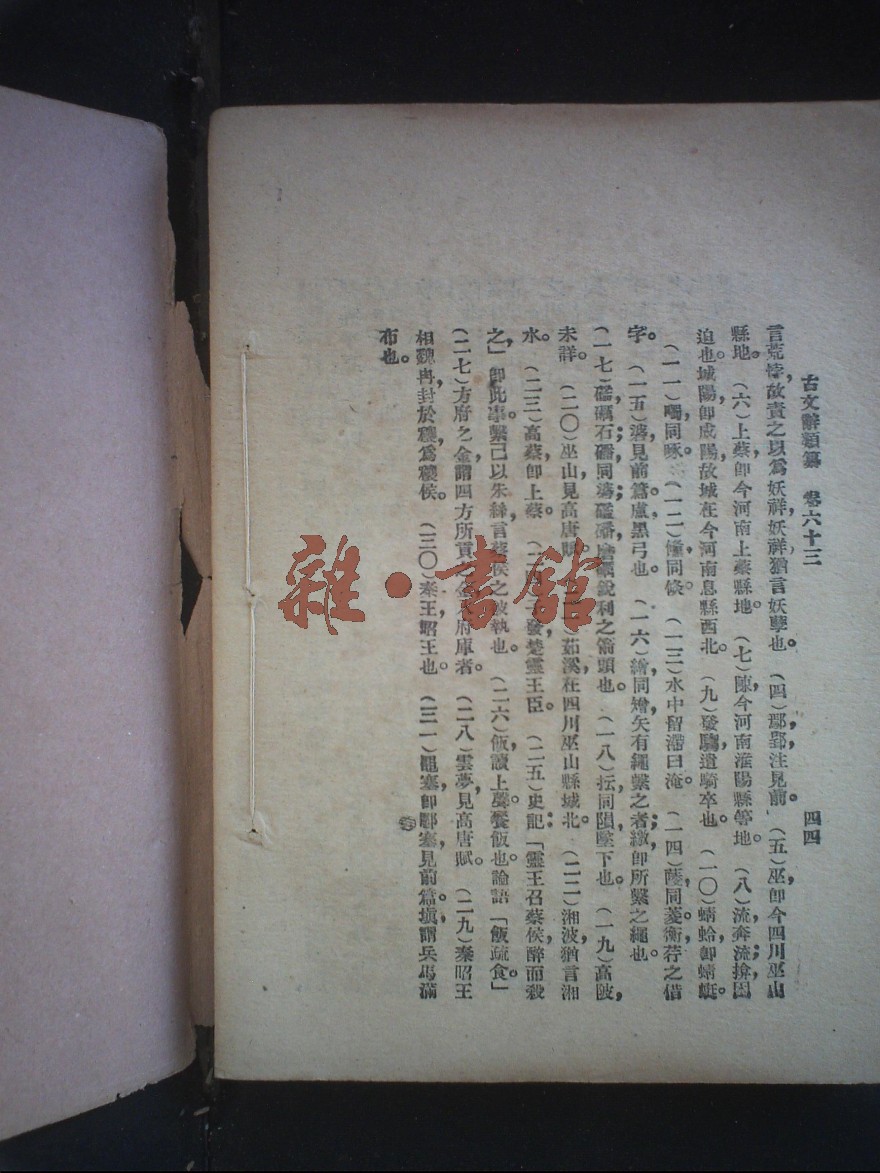 古文辭類纂　卷六十三　四四
言荒悖，故責之以爲妖祥，妖祥猶言妖孽也。　（四）鄢，郢，注見前。　（五）巫，卽今四川巫山
縣地。　（六）上蔡，卽今河南上蔡縣地。　（七）陳，今河南淮陽縣等地。　（八）流，奔流；揜，困
迫也，城陽，卽成陽，故城在今河南息縣西北。　（九）發，騶，遣騎卒也。　（一〇）蜻蛉，卽蜻蜓。
（一一）噣，同啄。　（一二）儵，同倏。　（一三）水中留滯曰淹。　（一四）䔖，同菱。衡，荇之借
字。　（一五）婆，見前篇。盧，黑弓也。　（一六）繒，同矰，矢有繩繫之者；繳，卽所繫之繩也。
（一七）礛，礪石；磻，同；礛磻，磨礪銳利之箭頭也。　（一八）抎，同隕，墜下也。　（一九）高陂，
未詳。　（二〇）巫山，見高唐賦。　茹溪，在四川巫山縣城北。　（二二）湘波，猶言湘
水。　（二三）高蔡，卽上蔡。　子發，楚靈王臣。　（二五）史記：「靈王召蔡侯，醉而殺
之，」卽此事。繫己以朱絲，言蔡侯之被執也。　（二六）飯，讀上聲，餐飯也。論語「飯疏食。」
（二七）方府之金，謂四方所貢之金，府庫者。　（二八）雲夢，見高唐賦。　（二九）秦昭王
相魏冉，封於穰，爲穰侯。　（三〇）秦王，昭王也。　（三一）黽塞，卽鄳塞，見前篇。塡，謂兵馬滿
布也。
雜·書館